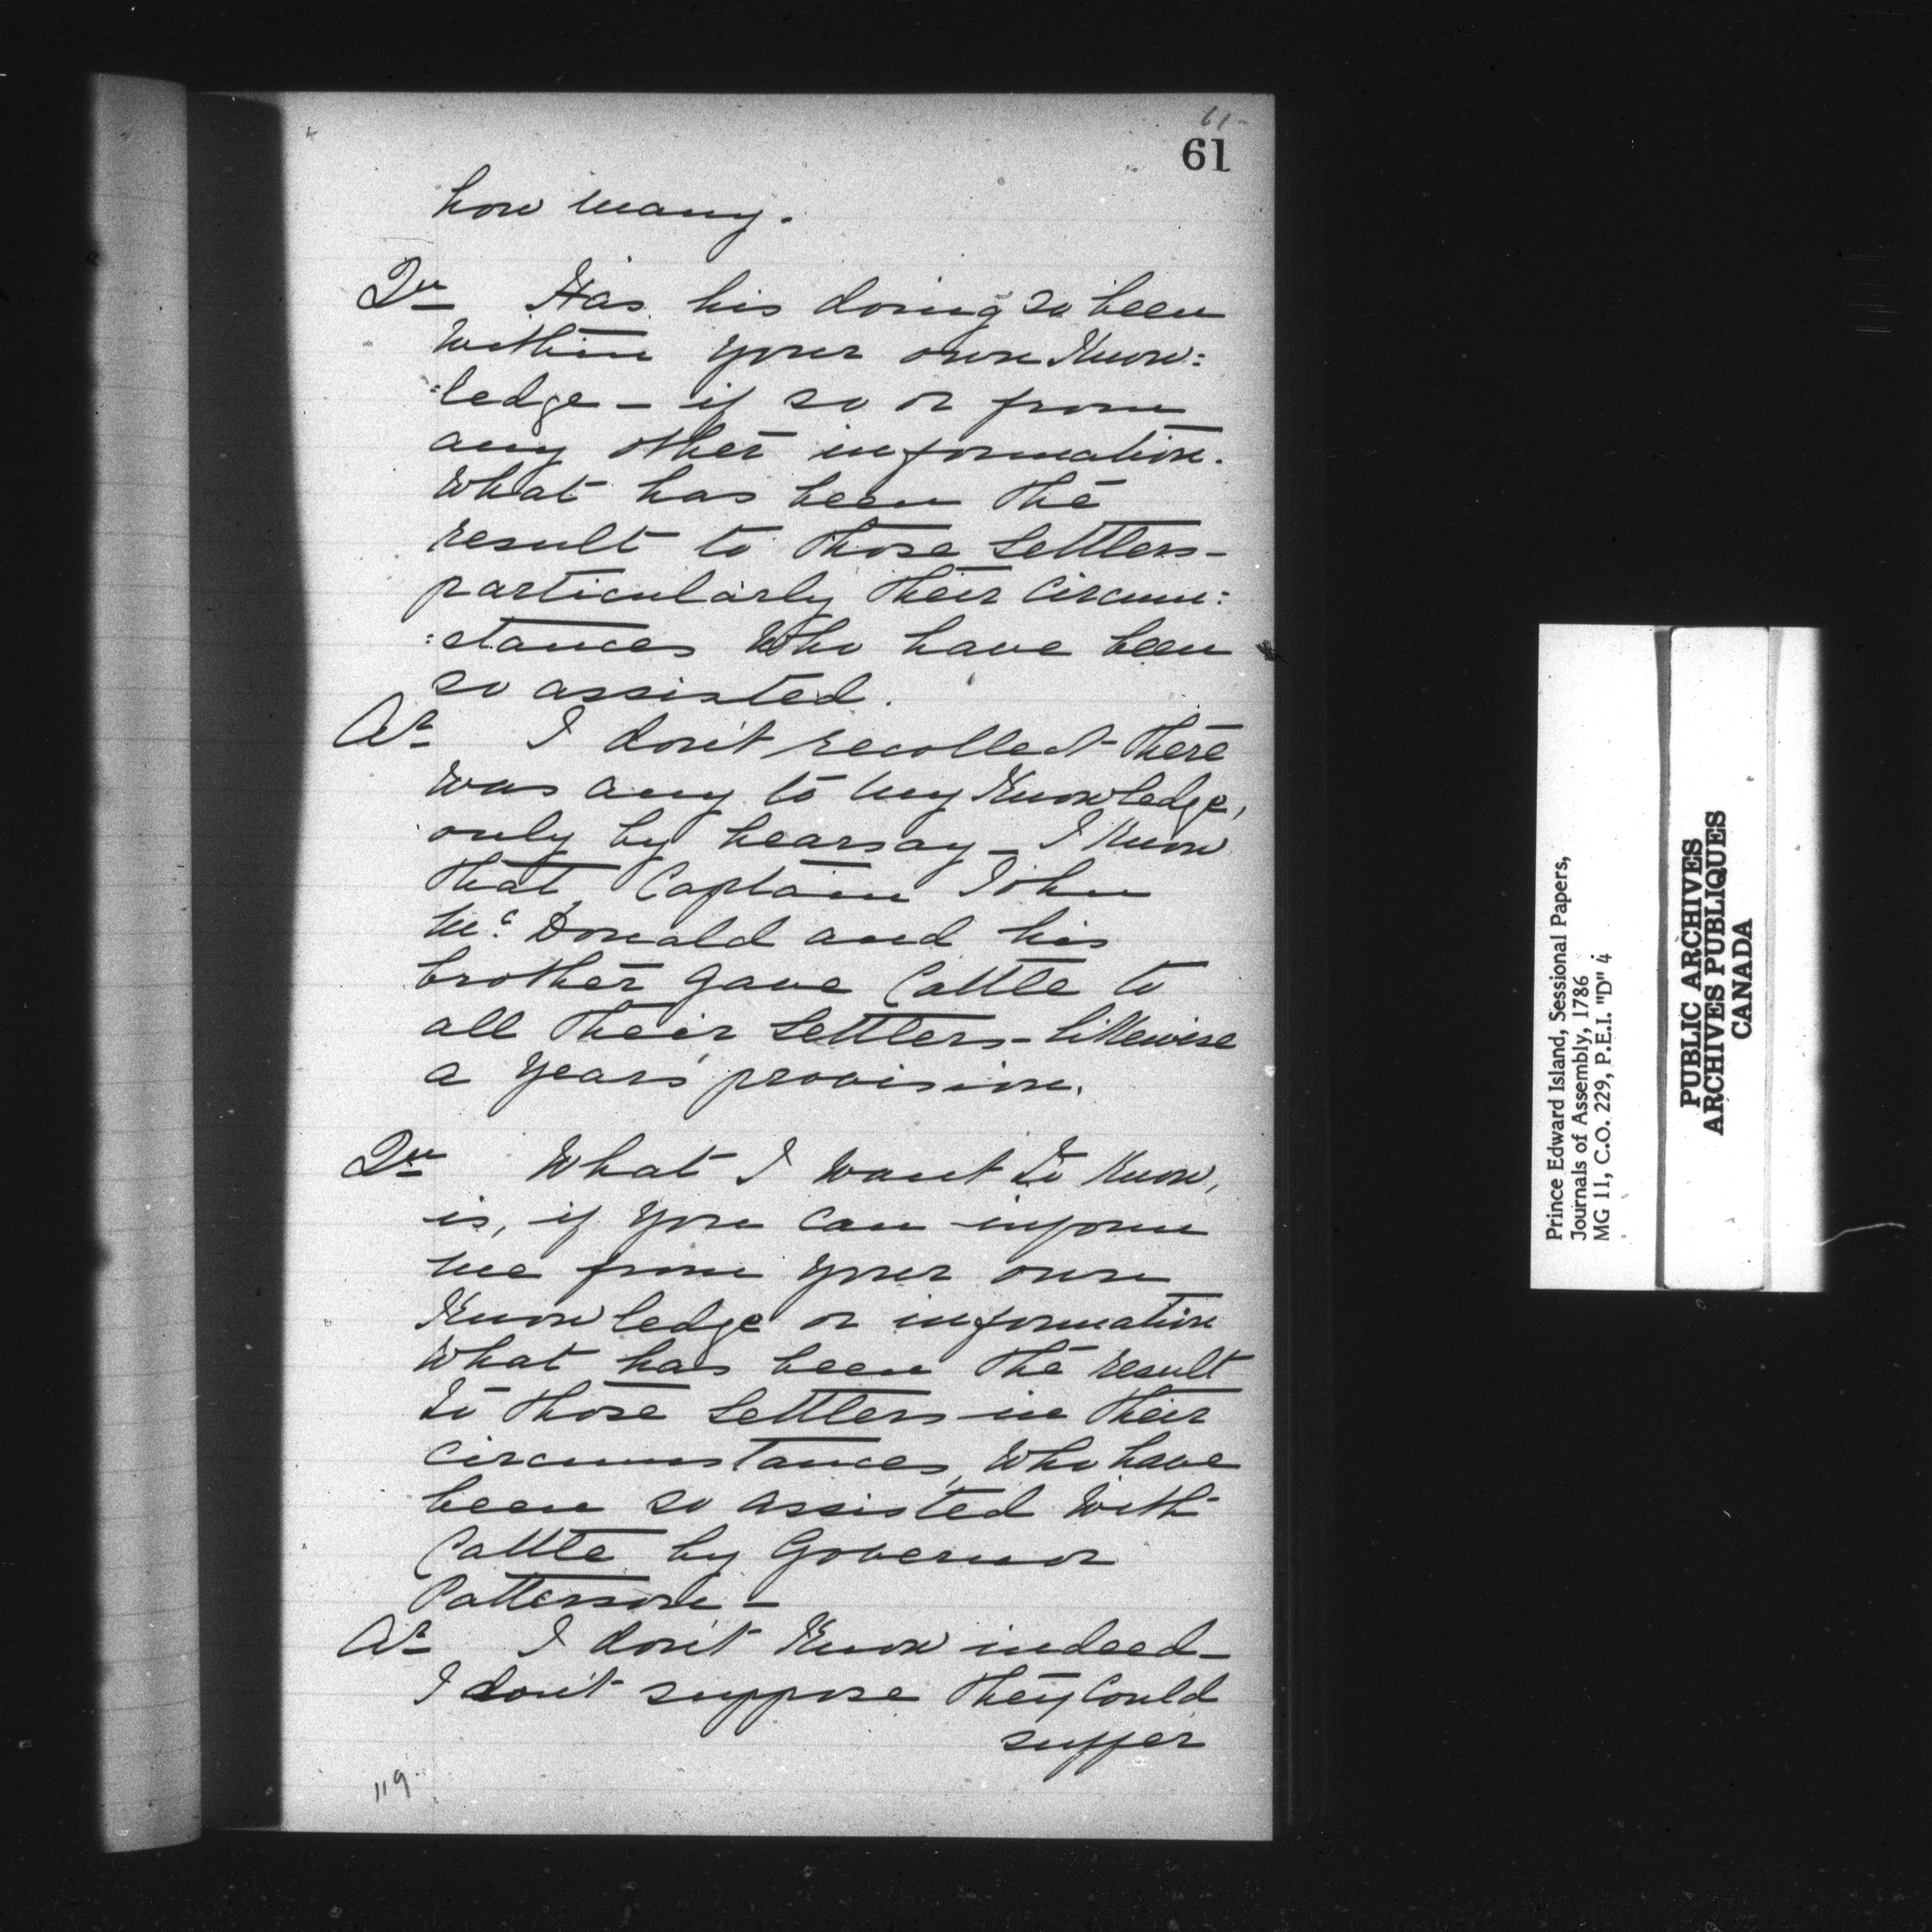 61-
61
how many.
Qu Has his doing so been
within your own Know:
:ledge - if so or from
any other information.
What has been the
result to those Settlers -
particularly their Circum:
:stances Who have been
so assisted.
Ar I don't recollect there
was any to my Knowledge,
only by hearsay - I know
that Captain John
Mc. Donald and his
brother gave Cattle to
all their Settlers - likewise
a years provision.
Qu What I want to know,
is, if you can inform
me from your own
Knowledge or information
what has been the result
to those Settlers in their
circumstances, Who have
been so assisted with
Cattle by Governor
Patterson -
Ar I don't know indeed -
I don't suppose they Could
suffer
119
Prince Edward Island, Sessional Papers,
Journals of Assembly, 1786
MG 11, C.O. 229, P.E.I. "D" 4
PUBLIC ARCHIVES
ARCHIVES PUBLIQUES
CANADA